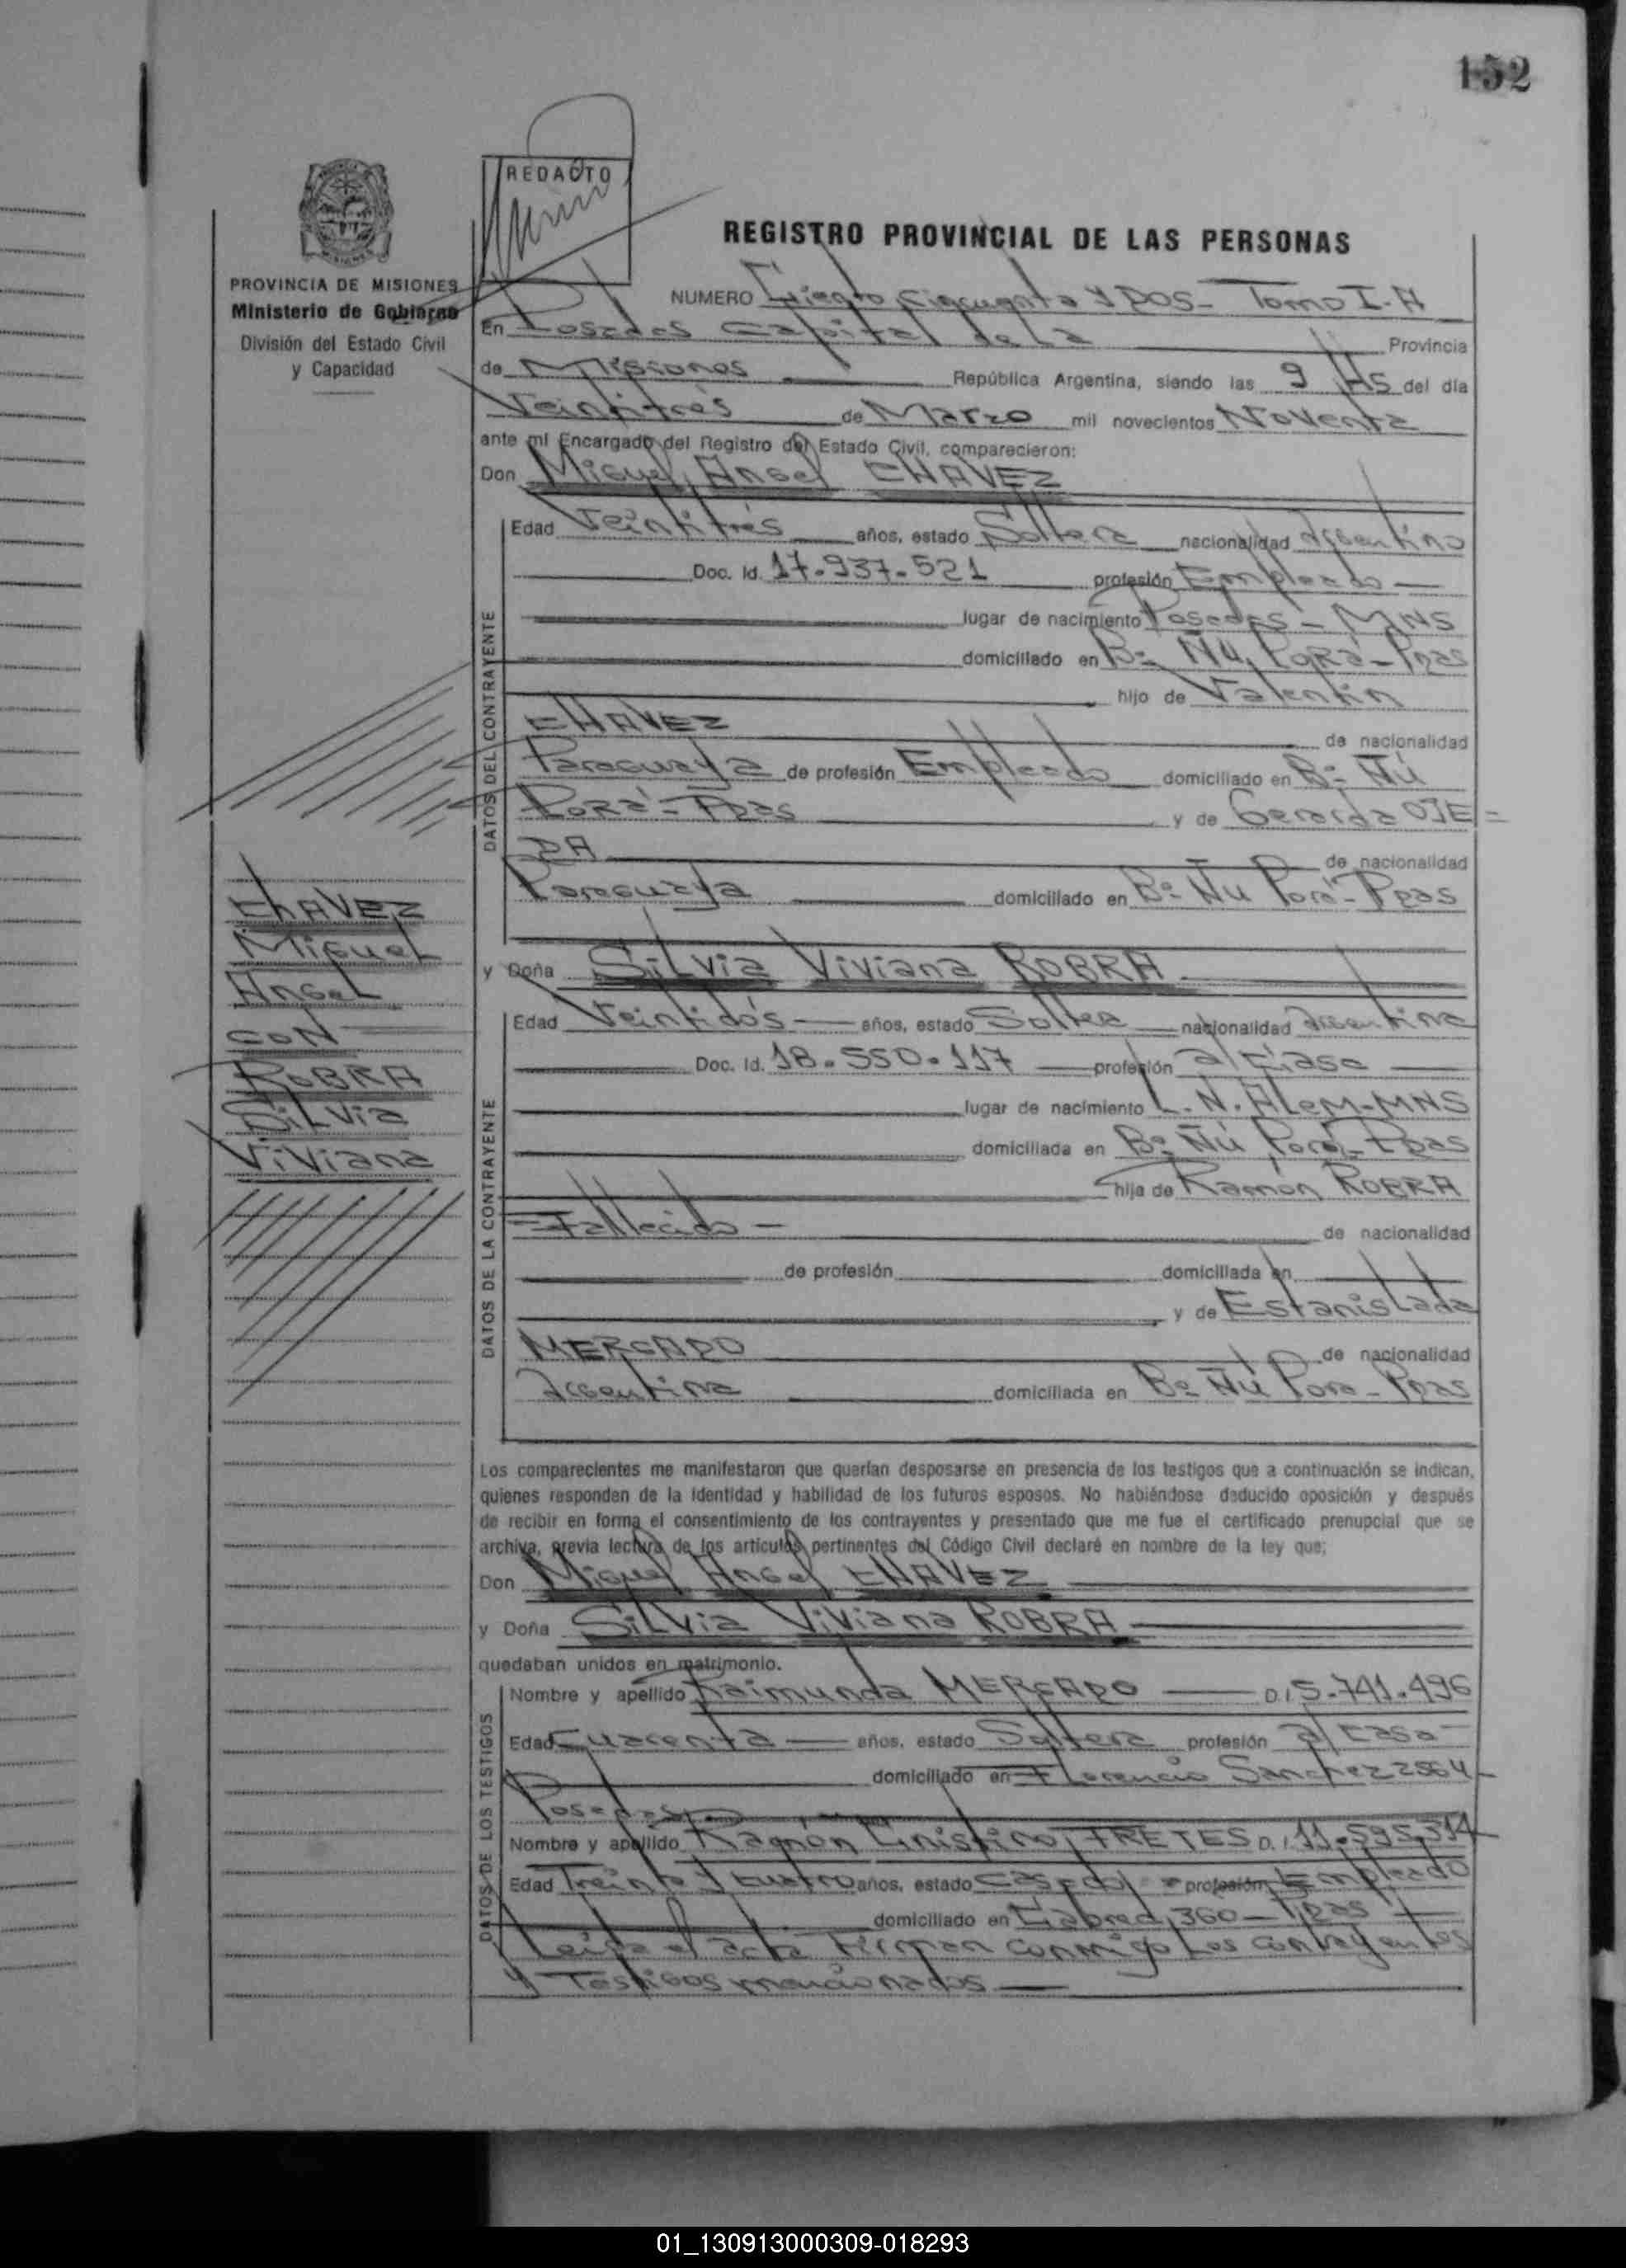 152
REDACTO
REGISTRO PROVINCIAL DE LAS PERSONAS
PROVINCIA DE MISIONES
Ministerio de Gobierno
División del Estado Civil
y Capacidad
NUMERO Ciento Cincuenta y DOS- Tomo I-A
En Posadas Capital de La Provincia
de Misiones República Argentina, siendo las 9 Hs del día
Veintitrés de Marzo mil novecientos Noventa
ante mí Encargado del Registro del Estado Civil, comparecieron:
Don Miguel Angel CHAVEZ
DATOS DEL CONTRAYENTE
Edad Veintitrés años, estado Soltero nacionalidad Argentino
Doc. Id. 17.937.521 profesión Empleado
lugar de nacimiento Posadas - MNS
domiciliado en Bº Ñú Porá - Pdas
hijo de Valentin
CHAVEZ de nacionalidad
Paraguaya de profesión Empleado domiciliado en Bº Ñú
Porá - Pdas y de Gerarda OJE=
DA de nacionalidad
Paraguaya domiciliado en Bº Ñu Porá - Pdas
y Doña Silvia Viviana ROBRA
CHAVEZ
Miguel
Angel
CON
ROBRA
Silvia
Viviana
DATOS DE LA CONTRAYENTE
Edad Veintidós años, estado Soltera nacionalidad Argentina
Doc. Id. 18.550.117 profesión a/ Casa
lugar de nacimiento L.N. Alem-MNS
domiciliada en Bº Ñú Porá - Pdas
hija de Ramón ROBRA
=Fallecido- de nacionalidad
de profesión domiciliada en
y de Estanislada
MERCADO de nacionalidad
Argentina domiciliada en Bº Ñú Pora - Pdas
Los comparecientes me manifestaron que querían desposarse en presencia de los testigos que a continuación se indican,
quienes responden de la identidad y habilidad de los futuros esposos. No habiéndose deducido oposición y después
de recibir en forma el consentimiento de los contrayentes y presentado que me fue el certificado prenupcial que se
archiva, previa lectura de los artículos pertinentes del Código Civil declaré en nombre de la ley que;
Don Miguel Angel CHAVEZ
y Doña Silvia Viviana ROBRA
quedaban unidos en matrimonio.
DATOS DE LOS TESTIGOS
Nombre y apellido Raimunda MERCADO D.I 5.741.496
Edad Cuarenta años, estado Soltera profesión a/ casa
domiciliado en Florencio Sanchez 2564
Posadas
Nombre y apellido Ramón FRETES D.I. 11.595.314
Edad Treinta y Cuatro años, estado Casado profesión Empleado
domiciliado en Cabred 360 - Pdas
Leida el acta Firman conmigo Los contrayentes
y Testigos mencionados
01_130913000309-018293